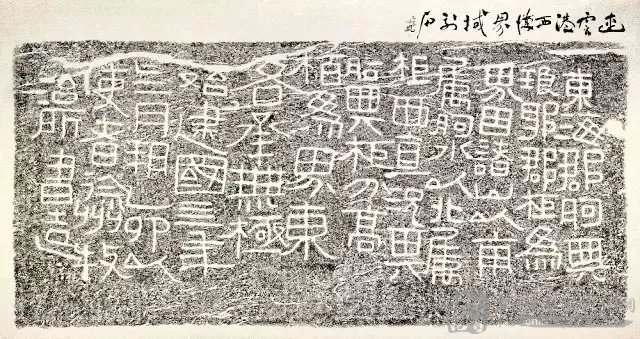 連雲港西漢界域刻石
東海郡朐與
琅邪郡柜為
界因諸山以南
屬朐水以北屬
柜西直況其
朐與柜分高
柏為界東
各承無極
始建國亖年
亖月朔乙卯以
使者徐州牧
治所書造